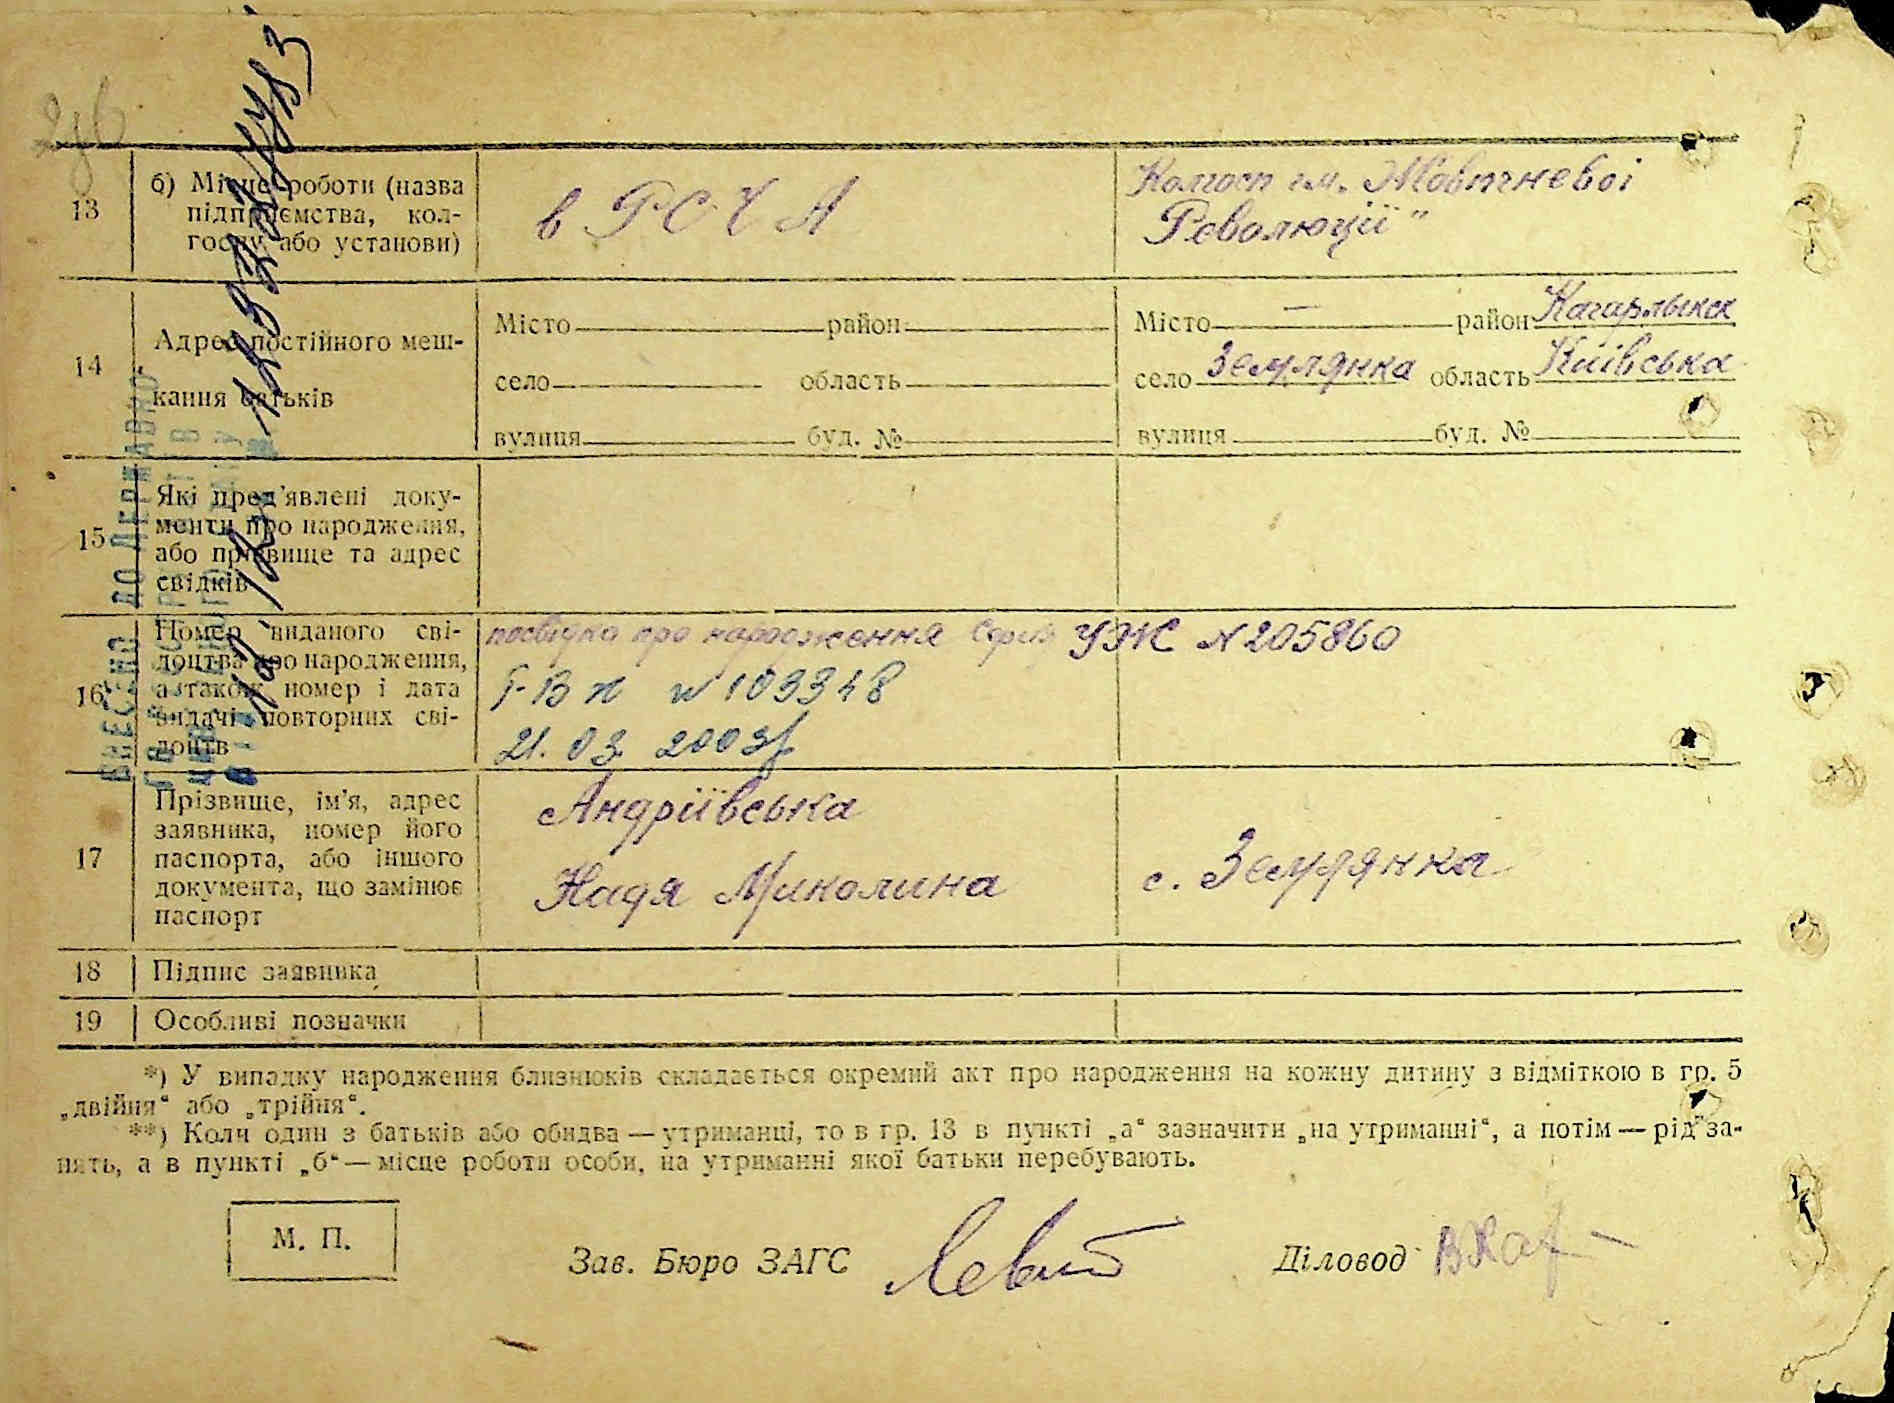 13
б) Місце роботи (назва
підприємства, кол-
госпу, або установи)
в РСЧА
Колгосп ім. Жовтневоі
Революції"
14
Адрес постійного меш-
кання батьків
Місто район
село область
вулиця буд. №
Місто — район Кагарлыкск
село Землянка область Київська
вулиця буд. №
15
Які пред'явлені доку-
менти про народження,
або прізвище та адрес
свідків
16
Номер виданого сві-
доцтва про народження,
а також номер і дата
видачі повторних сві-
доцтв
посвідка про народження Серія УЖ N 205860
І-ВК N 103348
21.03.2003
17
Прізвище, ім'я, адрес
заявника, номер його
паспорта, або іншого
документа, що замінює
паспорт
Андріївська
Надя Миколина
с. Землянка
18 Підпис заявника
19 Особливі позначки
*) У випадку народження близнюків складається окремий акт про народження на кожну дитину з відміткою в гр. 5
„двійня“ або „трійня“.
**) Коли один з батьків або обидва — утриманці, то в гр. 13 в пункті „а“ зазначити „на утриманні“, а потім — рід за-
нять, а в пункті „б“ — місце роботи особи, на утриманні якої батьки перебувають.
М. П.
Зав. Бюро ЗАГС
Діловод
ВНЕСЕНО ДО ДЕРЖАВНО-